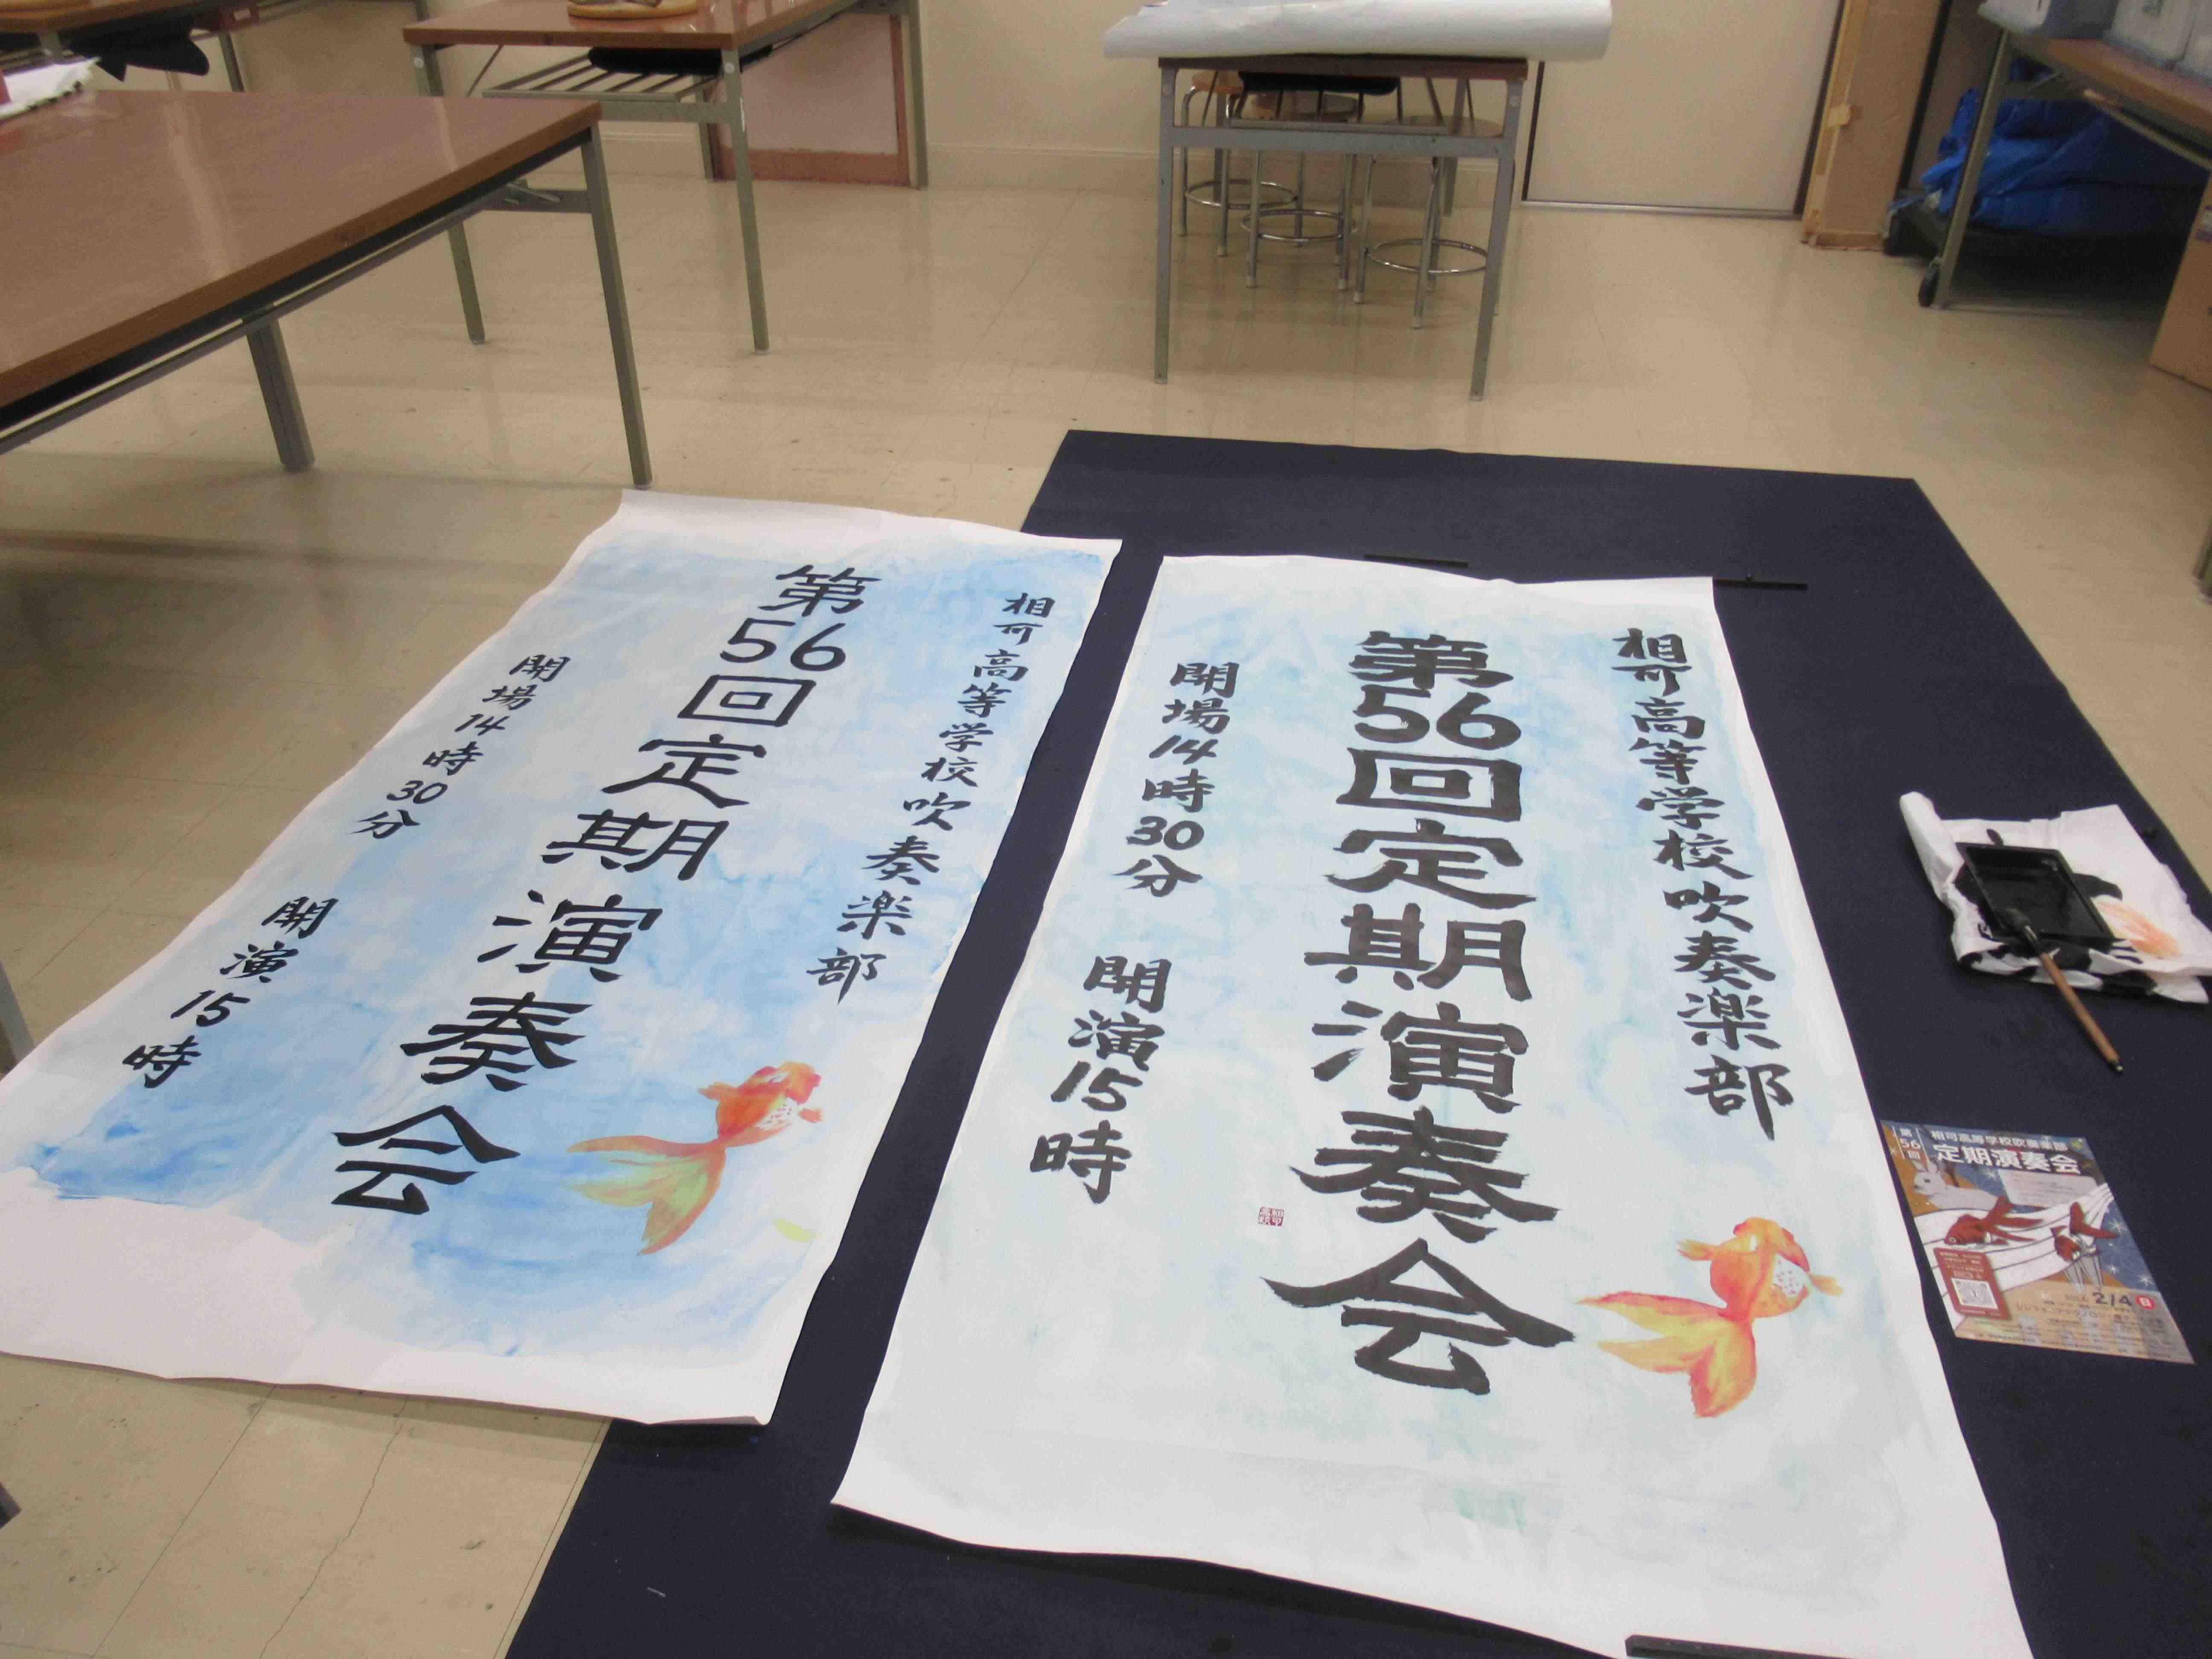 相可高等学校吹奏楽部
第56回定期演奏会
開場14時30分 開演15時
相可高等学校吹奏楽部
第56回定期演奏会
開場14時30分 開演15時
第56回
相可高等学校吹奏楽部
定期演奏会
2/4 日